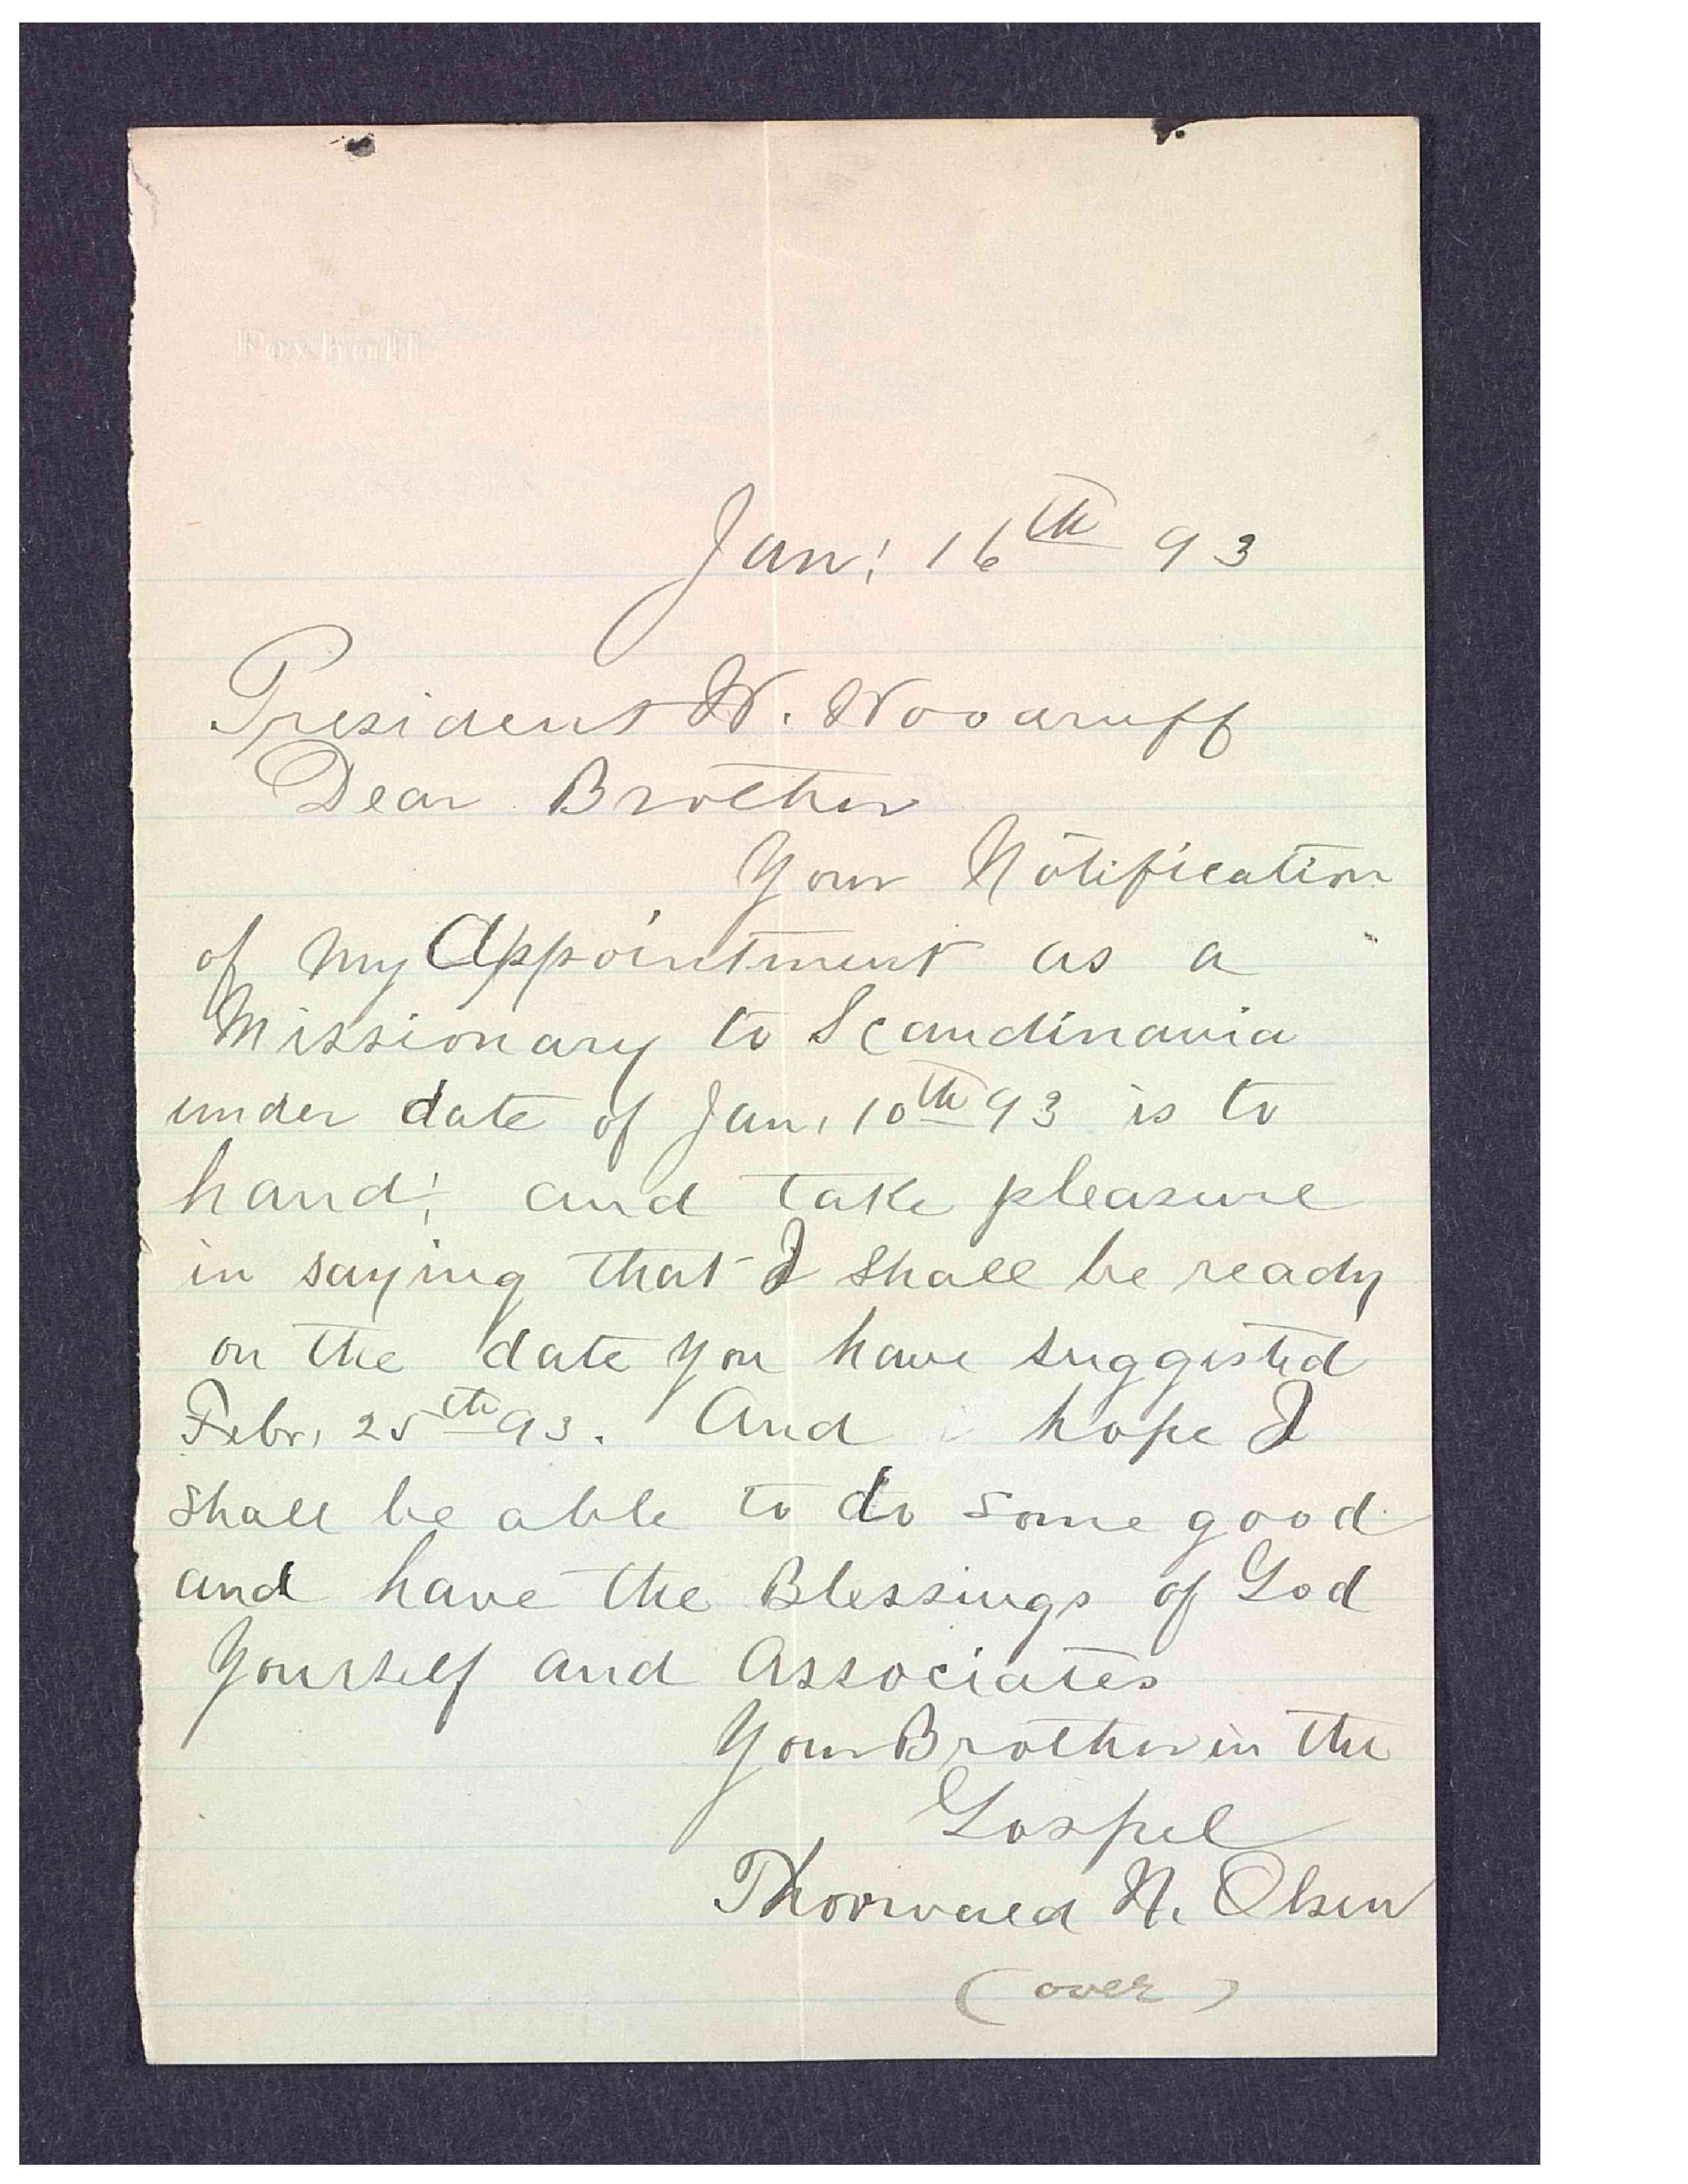 Jan: 16th 93
President W. Woodruff
Dear Brother
Your Notification
of my Appointment as a
Missionary to Scandinavia
under date of Jan, 10th 93 is to
hand; and take pleasure
in saying that I shall be ready
on the date you have suggested
Febr, 25th 93. And hope I
shall be able to do some good
and have the Blessings of God
Yourself and Associates
Your Brother in the
Gospel
Thorwald N. Olsen
(over)